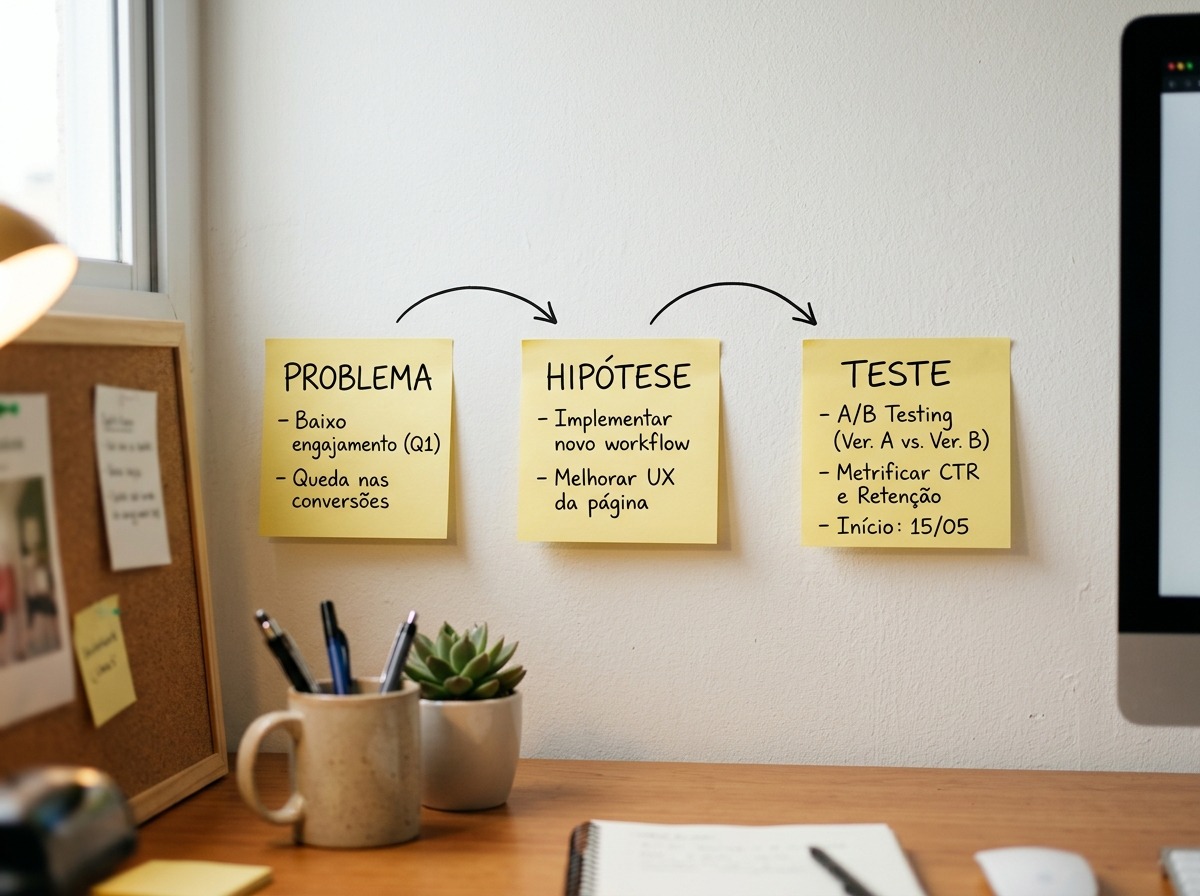 PROBLEMA
- Baixo
engajamento (Q1)
- Queda nas
conversões
HIPÓTESE
- Implementar
novo workflow
- Melhorar UX
da página
TESTE
- A/B Testing
(Ver. A vs. Ver. B)
- Metrificar CTR
e Retenção
- Início: 15/05